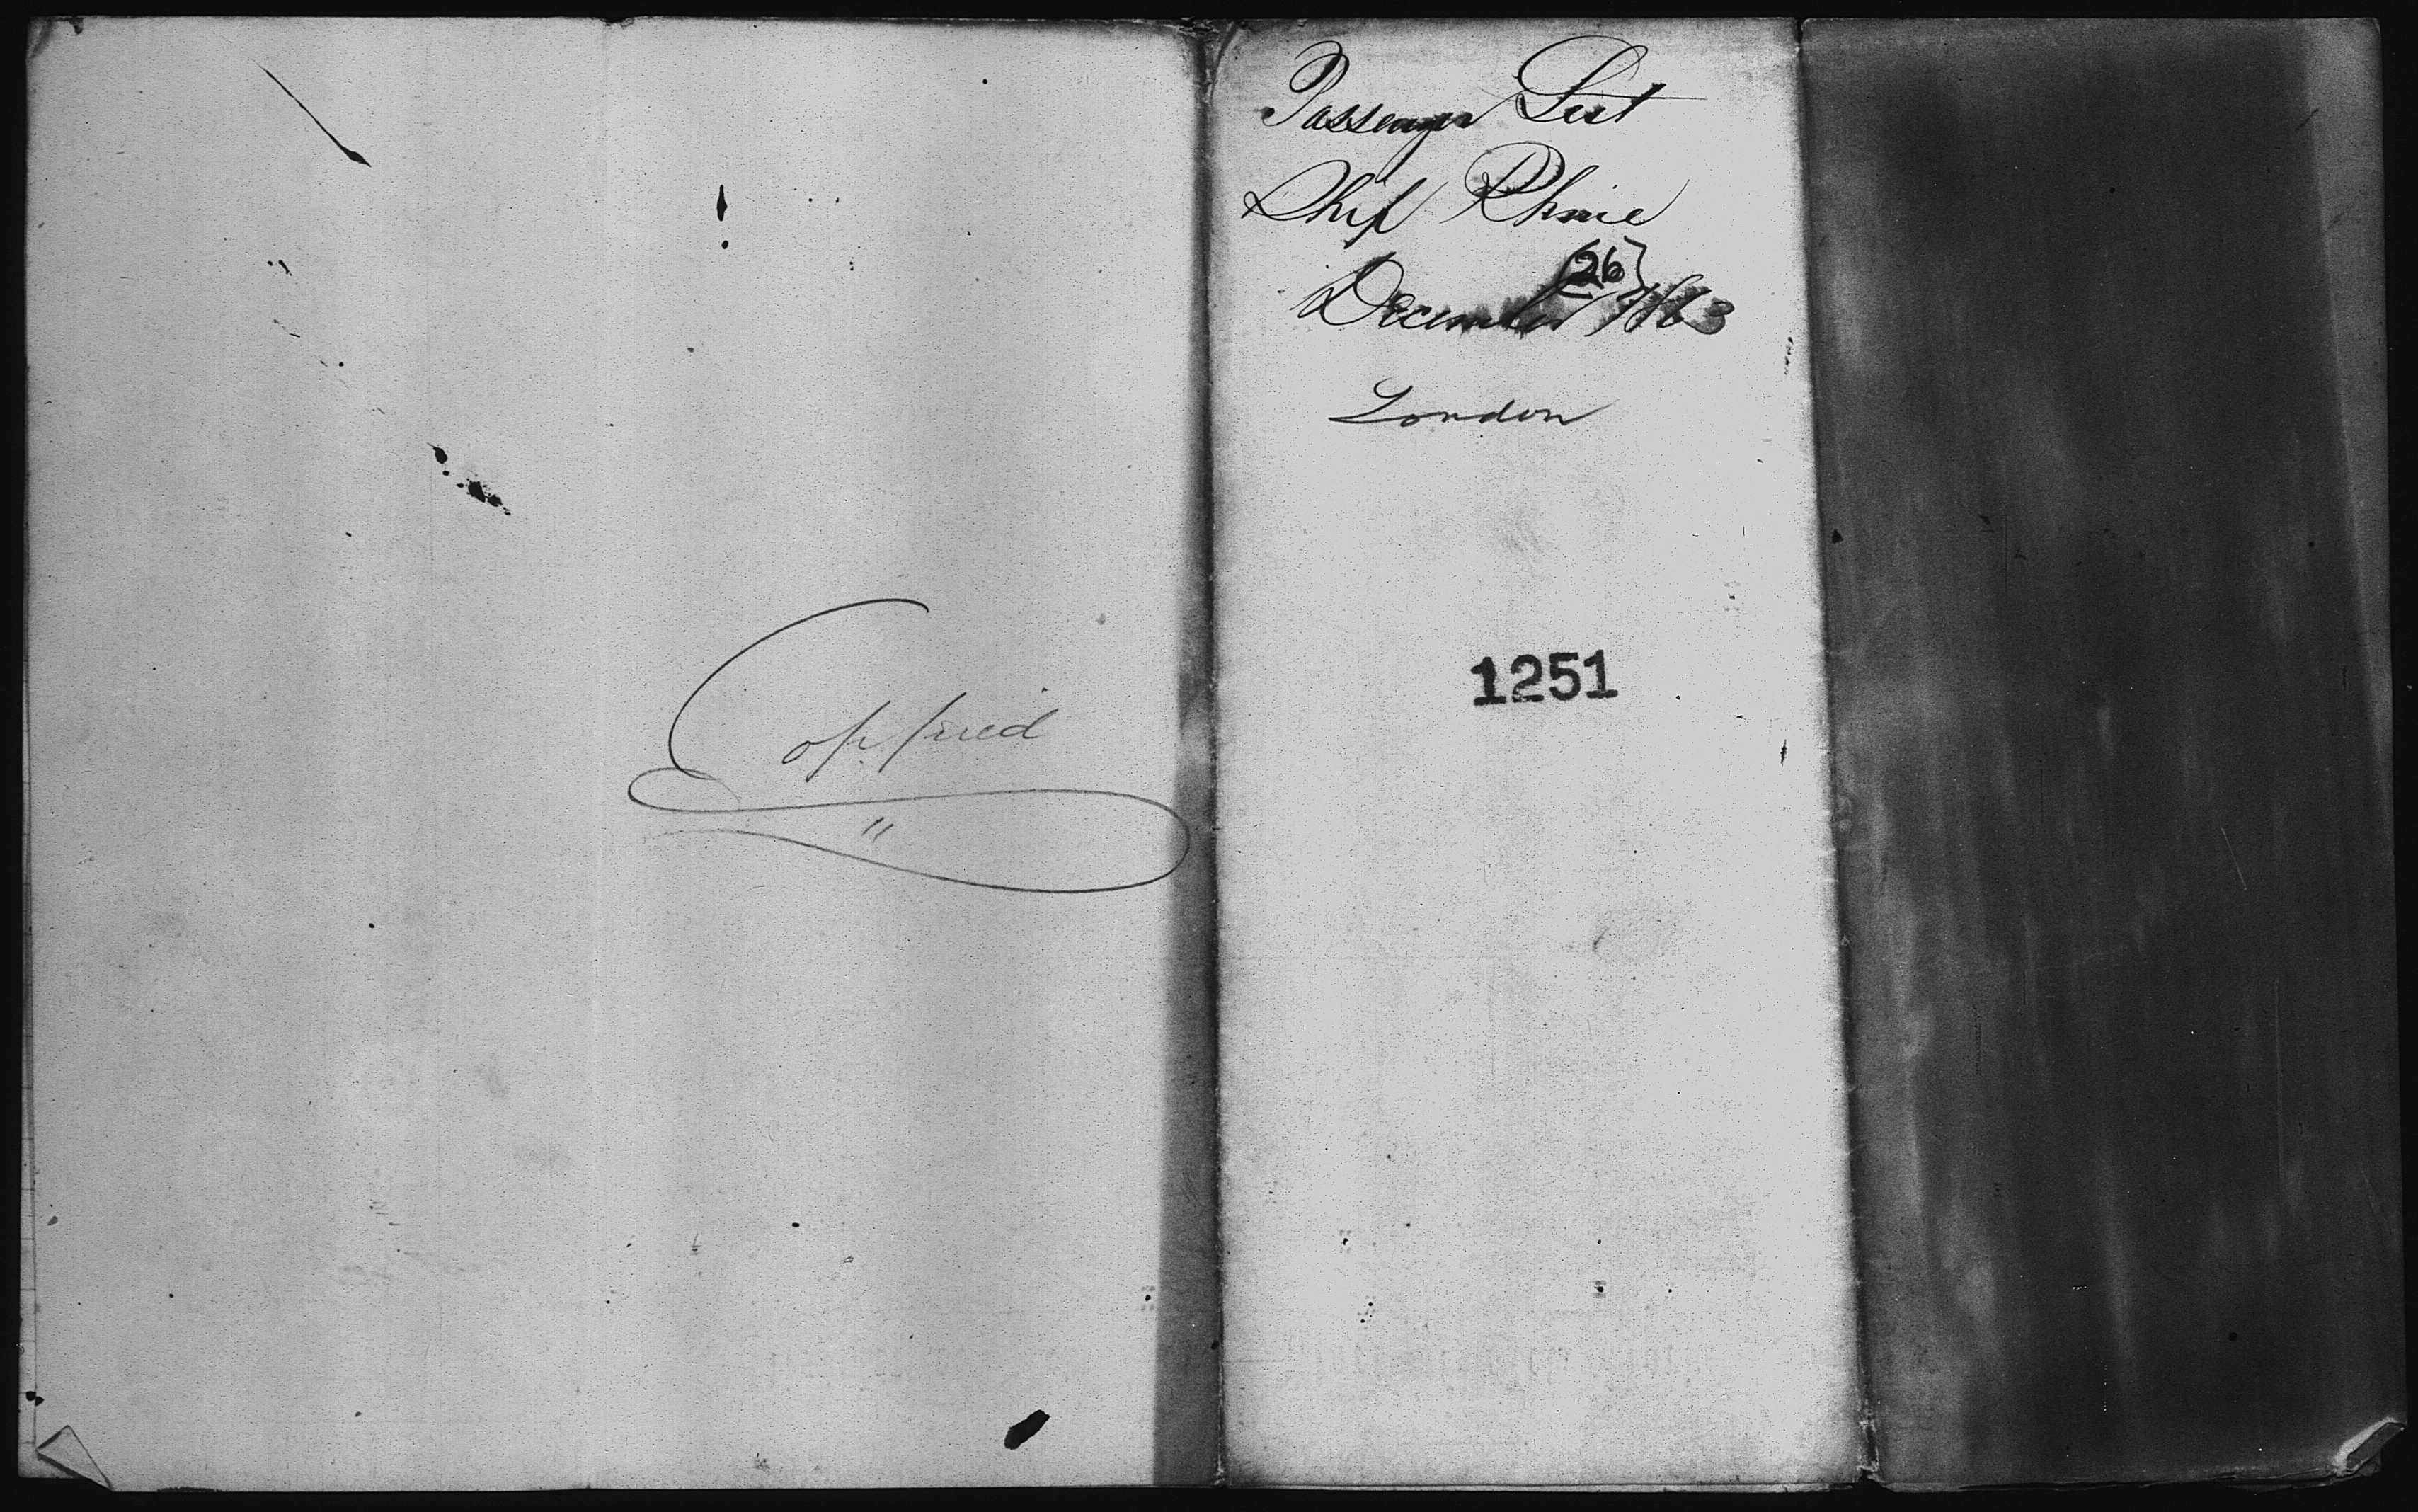 Coppied
"
Passenger List
Ship Rhine
(26)
December 1863
London
1251